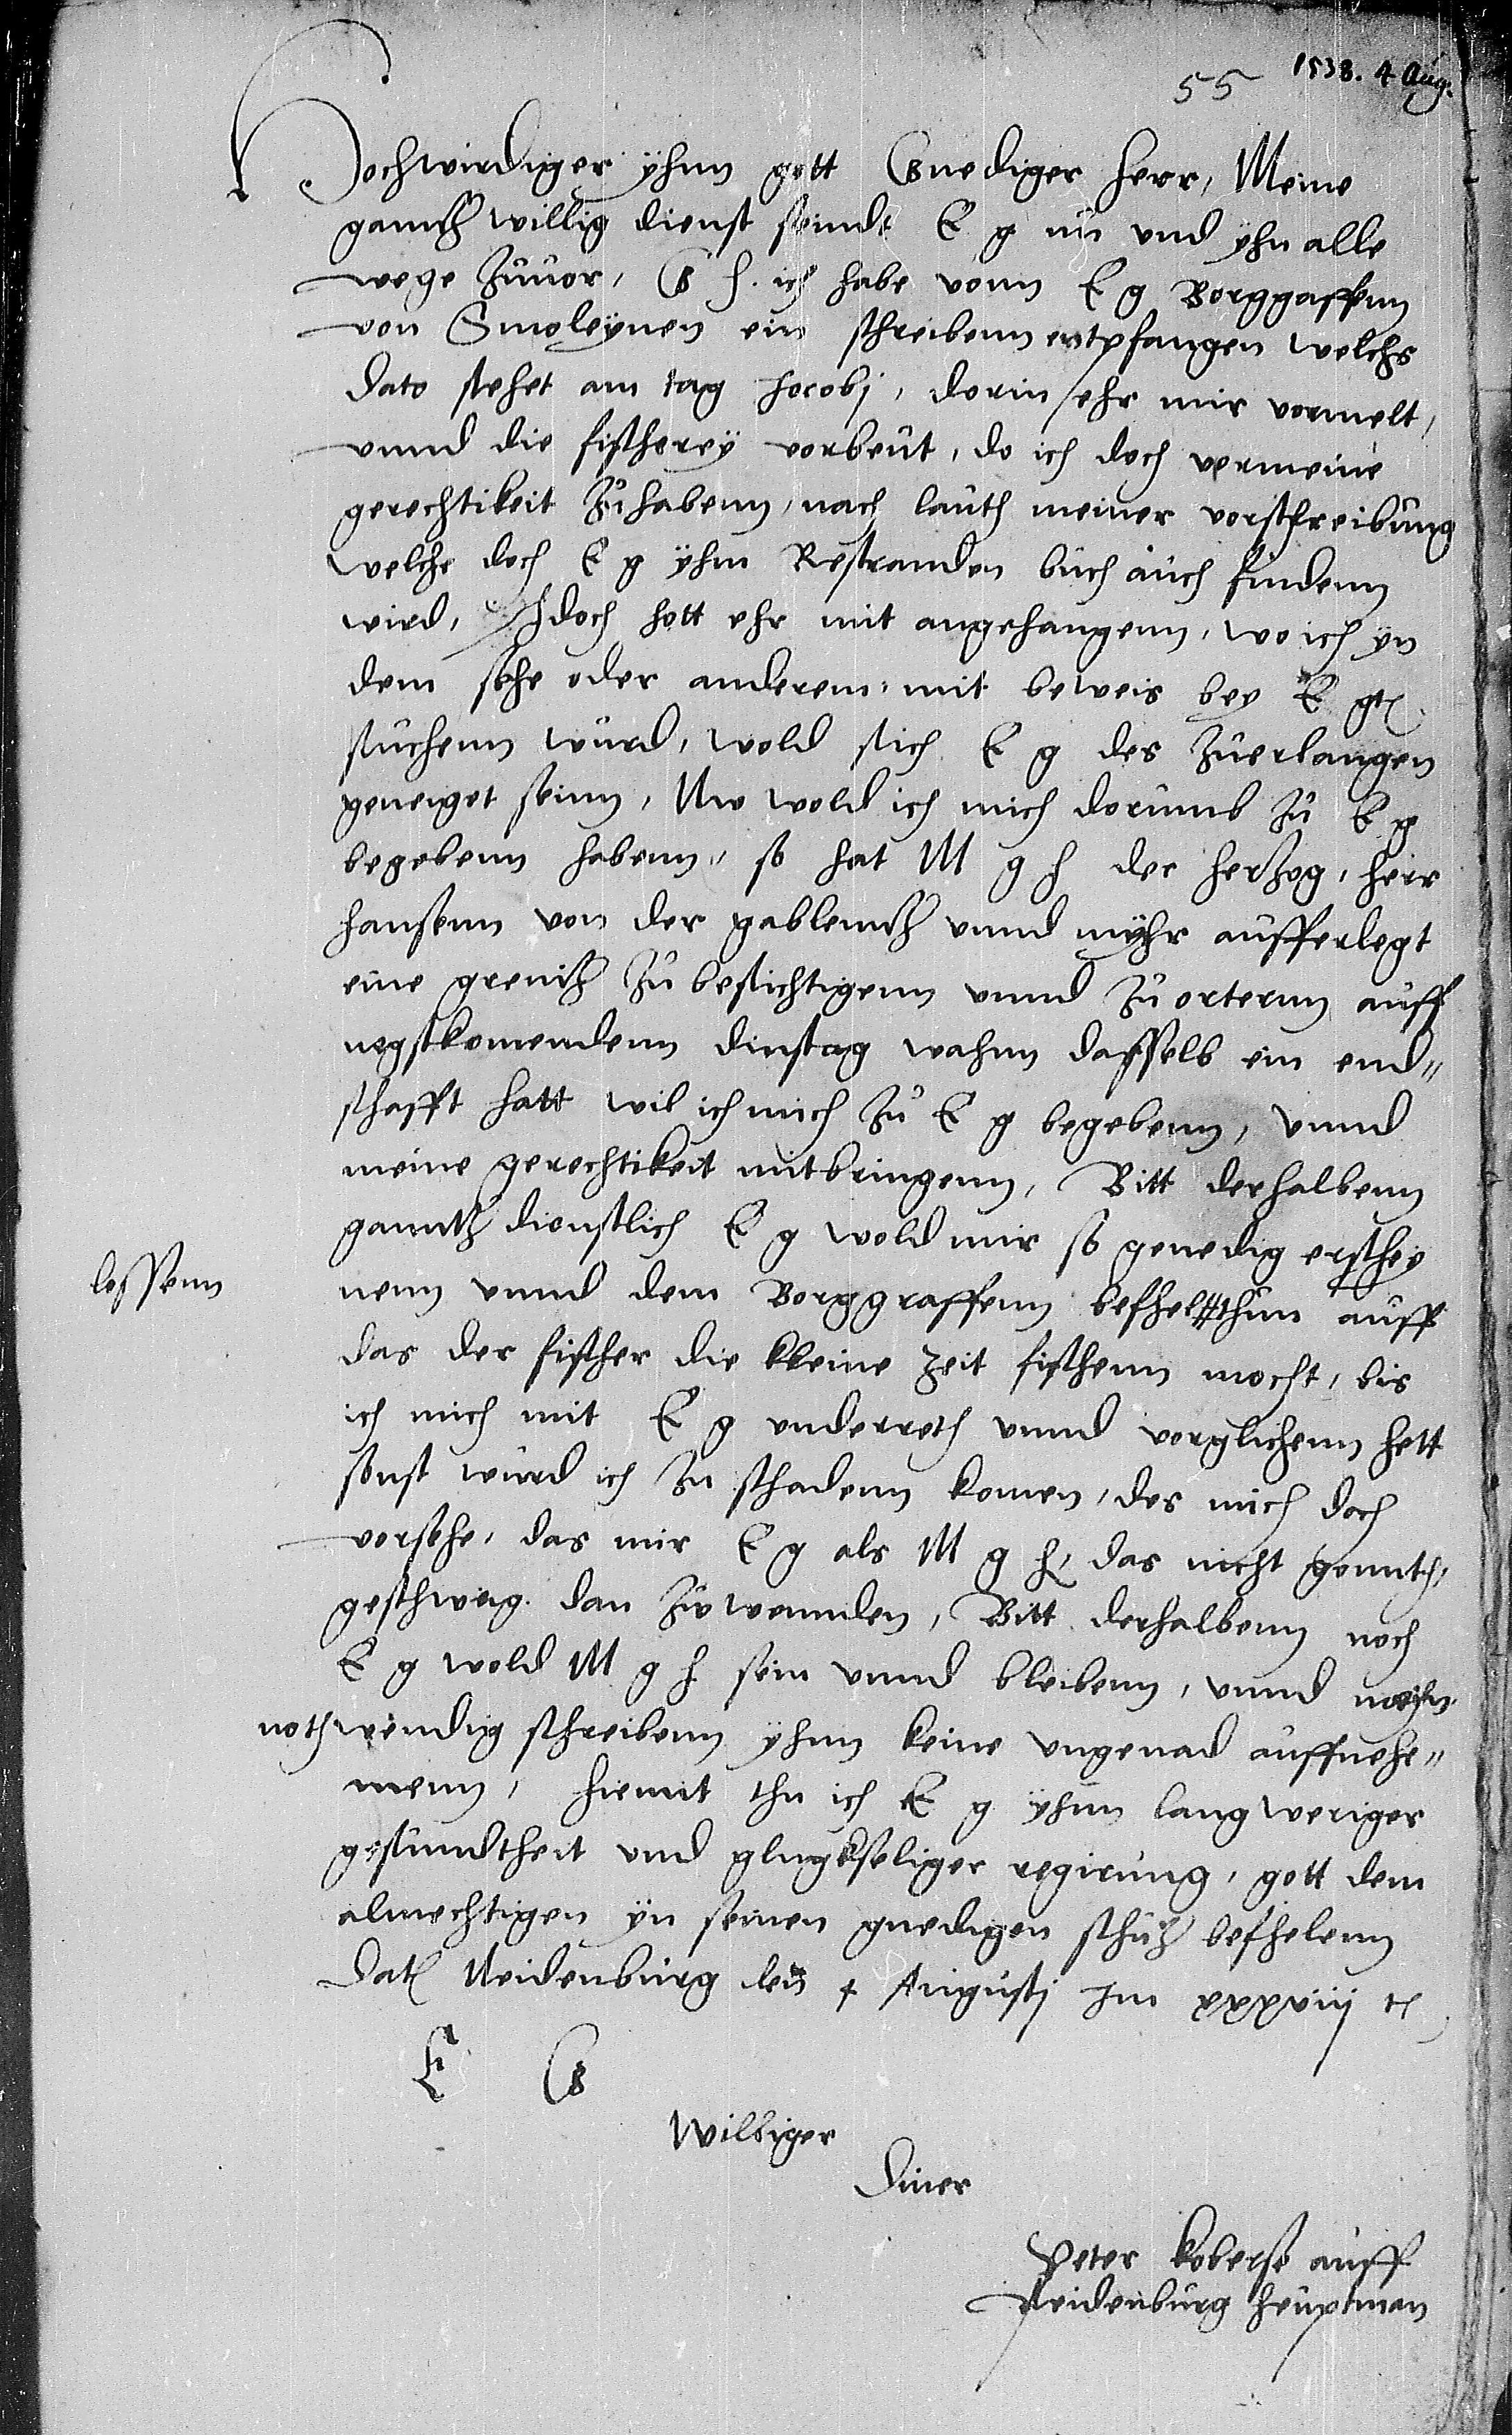 1538. 4 Aug.
55
Hochwirdiger yhnn gott Gnediger herr, Meine
ganntz willig dienst seindt E g nu und yhn alle
wege zuuor, G h. ich habe vonn E g Borggraffenn
von Smoleynen ein schreibenn entpfangen welchs
dato stehet am tag Jocobj, dorin ehr mir vormelt,
vnnd die fischerey vorbeut, do ich doch vermeine
gerechtikeit zuhabenn, nach lauth meiner vorschreibung
welche doch E g yhm Restranden buch auch findenn
wird, Jdoch hott ehr mit angehangenn, wo ich yn
dem sehe oder anderem mit beweis bey E g
suchenn wurd, wold sich E g des zuerlangen
geneiget seinn, Nw wold ich mich dorumb zu E g
begebenn habenn, so hat M g h der hertzog, herr
hansenn von der gablentz vnnd myhr aufferlegt
eine grenitz zu besichtigenn vnnd zu orternn auff
negstkomendenn dinstag wahnn dasselb ein end„
schafft hatt wil ich mich zu E g begebenn, vnnd
meine gerechtikeit mitbringenn, Bitt derhalbenn
ganntz dienstlich E g wold mir so genedig erschey
nenn vnnd dem Borggraffenn befhel thun auff
lessenn
das der fischer die kleine zeit fischenn mocht, bis
ich mich mit E g underreth vnnd vorglichenn hett
sonst wurd ich zu schadenn komen, des mich doch
vorsehe, das mir E g als M g h, das nicht gonnth,
geschweig dan zw wennden, Bitt derhalbenn noch
E g wold M g h sein vnnd bleibenn, vnnd mein
nothwendig schreibenn yhnn keine ungenad auffnehe„
menn, hiemit thu ich E g yhnn langweriger
gesundtheit und glugkseliger regirung, gott dem
almechtigen yn seinen gnedigen schutz befhelenn
Dat Neidenburg den 4 Augustj Im xxxviij
E G
Williger
Diner
Peter koberse auff
Neidenburg heuptman